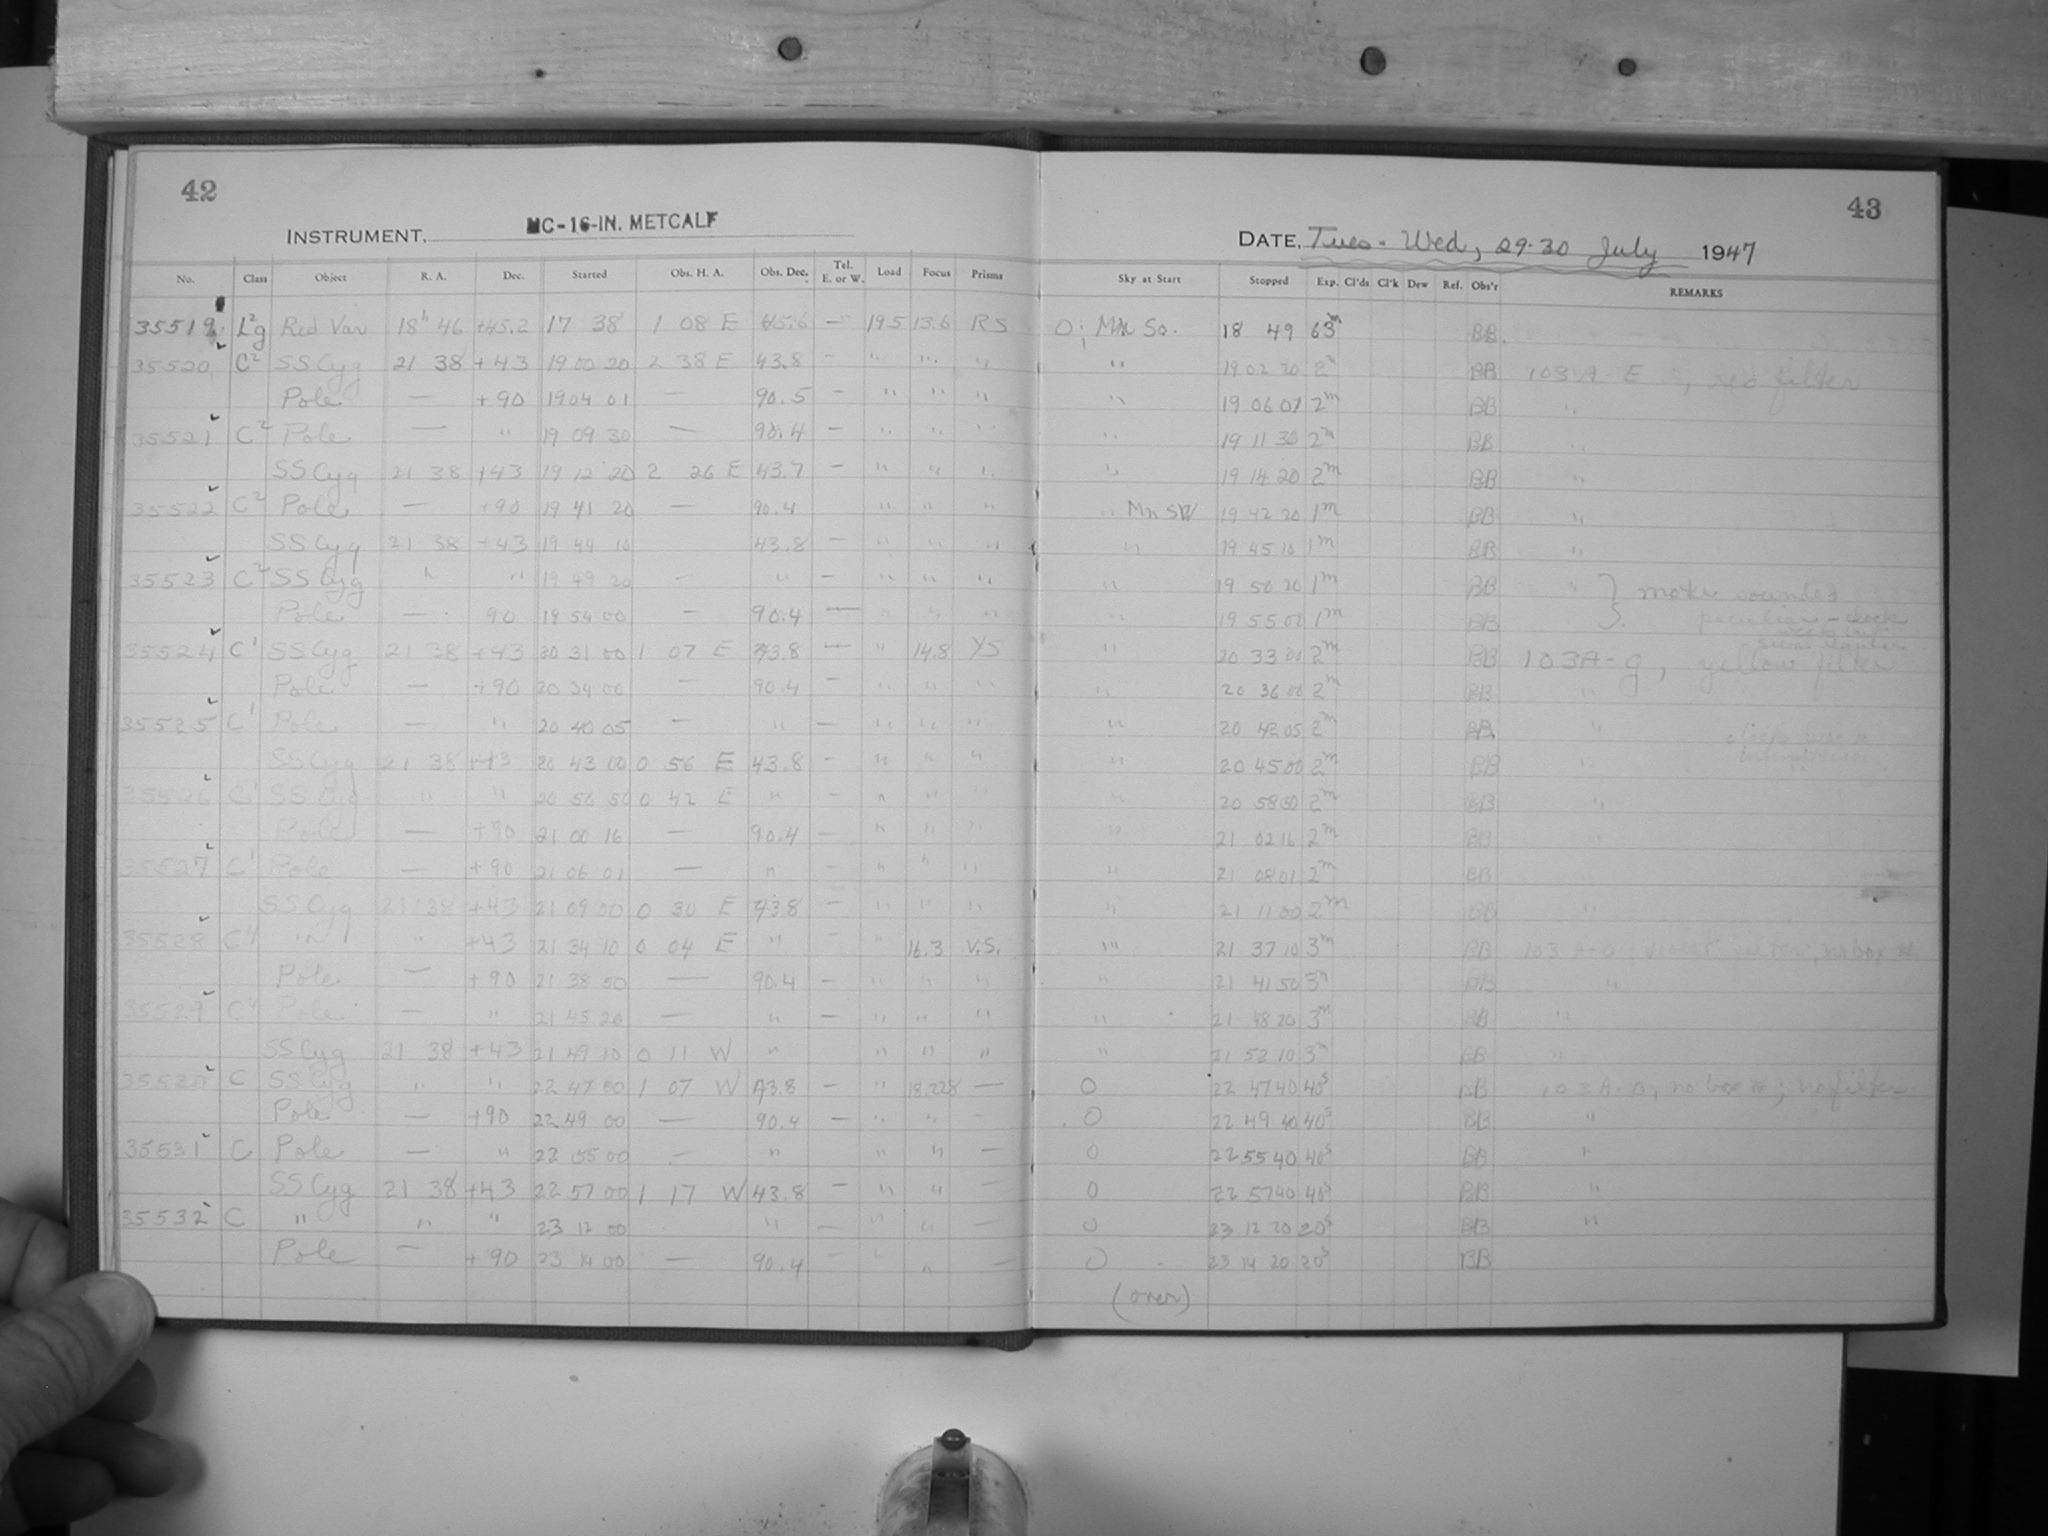 42
INSTRUMENT, MC-16-IN. METCALF
No. Class Object R. A. Dec. Started Obs. H. A. Obs. Dec. Tel. E. or W. Load Focus Prisms
35519 L²g Red Var 18ʰ 46 +45.2 17 38 1 08 E 45.6 — 19.5 15.6 RS
35520 C² SS Cyg 21 38 +43 19 00 20 2 38 E 43.8 — " " "
Pole — +90 19 04 01 — 90.5 — " " "
35521 C² Pole — " 19 09 30 — 90.4 — " " "
SS Cyg 21 38 +43 19 12 20 2 26 E 43.7 — " " "
35522 C² Pole — +90 19 41 20 — 90.4 " " "
SS Cyg 21 38 +43 19 44 10 43.8 — " " "
35523 C² SS Cyg " " 19 49 20 — " — " " "
Pole — 90 19 54 00 — 90.4 — " " "
35524 C¹ SS Cyg 21 38 +43 20 31 00 1 07 E 43.8 — " 14.8 YS
Pole — +90 20 34 00 — 90.4 — " " "
35525 C¹ Pole — " 20 40 05 — " — " " "
SS Cyg 21 38 +43 20 43 00 0 56 E 43.8 — " " "
35526 C¹ SS Cyg " " 20 56 50 0 42 E " — " " "
Pole — +90 21 00 16 — 90.4 — " " "
35527 C¹ Pole — +90 21 06 01 — " — " " "
SS Cyg 21 38 +43 21 09 00 0 30 E 43.8 — " " "
35528 C⁴ " " +43 21 34 10 0 04 E " — " 16.3 V.S.
Pole — +90 21 38 50 — 90.4 — " " "
35529 C⁴ Pole — " 21 45 20 — " — " " "
SS Cyg 21 38 +43 21 49 10 0 11 W " " " "
C SS Cyg " " 22 47 00 1 07 W 43.8 — " 18.228 —
Pole — +90 22 49 00 — 90.4 — " " —
35531 C Pole — " 22 55 00 — " " " —
SS Cyg 21 38 +43 22 57 00 1 17 W 43.8 — " " —
35532 C " " " 23 12 00 " — " " —
Pole — +90 23 14 00 — 90.4 — " " —
43
DATE, Tues - Wed, 29-30 July 1947
Sky at Start Stopped Exp. Cl'ds Cl'k Dew Ref. Obs'r REMARKS
O; Mn So. 18 49 63ᵐ BB.
" 19 02 20 2ᵐ BB 103A-E, red filter
" 19 06 01 2ᵐ BB "
" 19 11 30 2ᵐ BB "
" 19 14 20 2ᵐ BB "
" Mn SW 19 42 20 1ᵐ BB "
" 19 45 10 1ᵐ BB "
" 19 50 20 1ᵐ BB " } motor sounded
" 19 55 00 1ᵐ BB peculiar - clock
" 20 33 00 2ᵐ BB 103A-g, yellow filter
" 20 36 00 2ᵐ BB "
" 20 42 05 2ᵐ BB "
" 20 45 00 2ᵐ BB "
" 20 58 50 2ᵐ BB "
" 21 02 16 2ᵐ BB "
" 21 08 01 2ᵐ BB
" 21 11 00 2ᵐ BB "
" 21 37 10 3ᵐ BB 103A-O, violet filter, no box
" 21 41 50 3ᵐ BB "
" 21 48 20 3ᵐ BB "
" 21 52 10 3ᵐ BB "
O 22 47 40 40ˢ BB 103A-O, no box; no filter
O 22 49 40 40ˢ BB "
O 22 55 40 40ˢ BB "
O 22 57 40 40ˢ BB "
O 23 12 20 20ˢ BB "
O 23 14 20 20ˢ BB
(over)